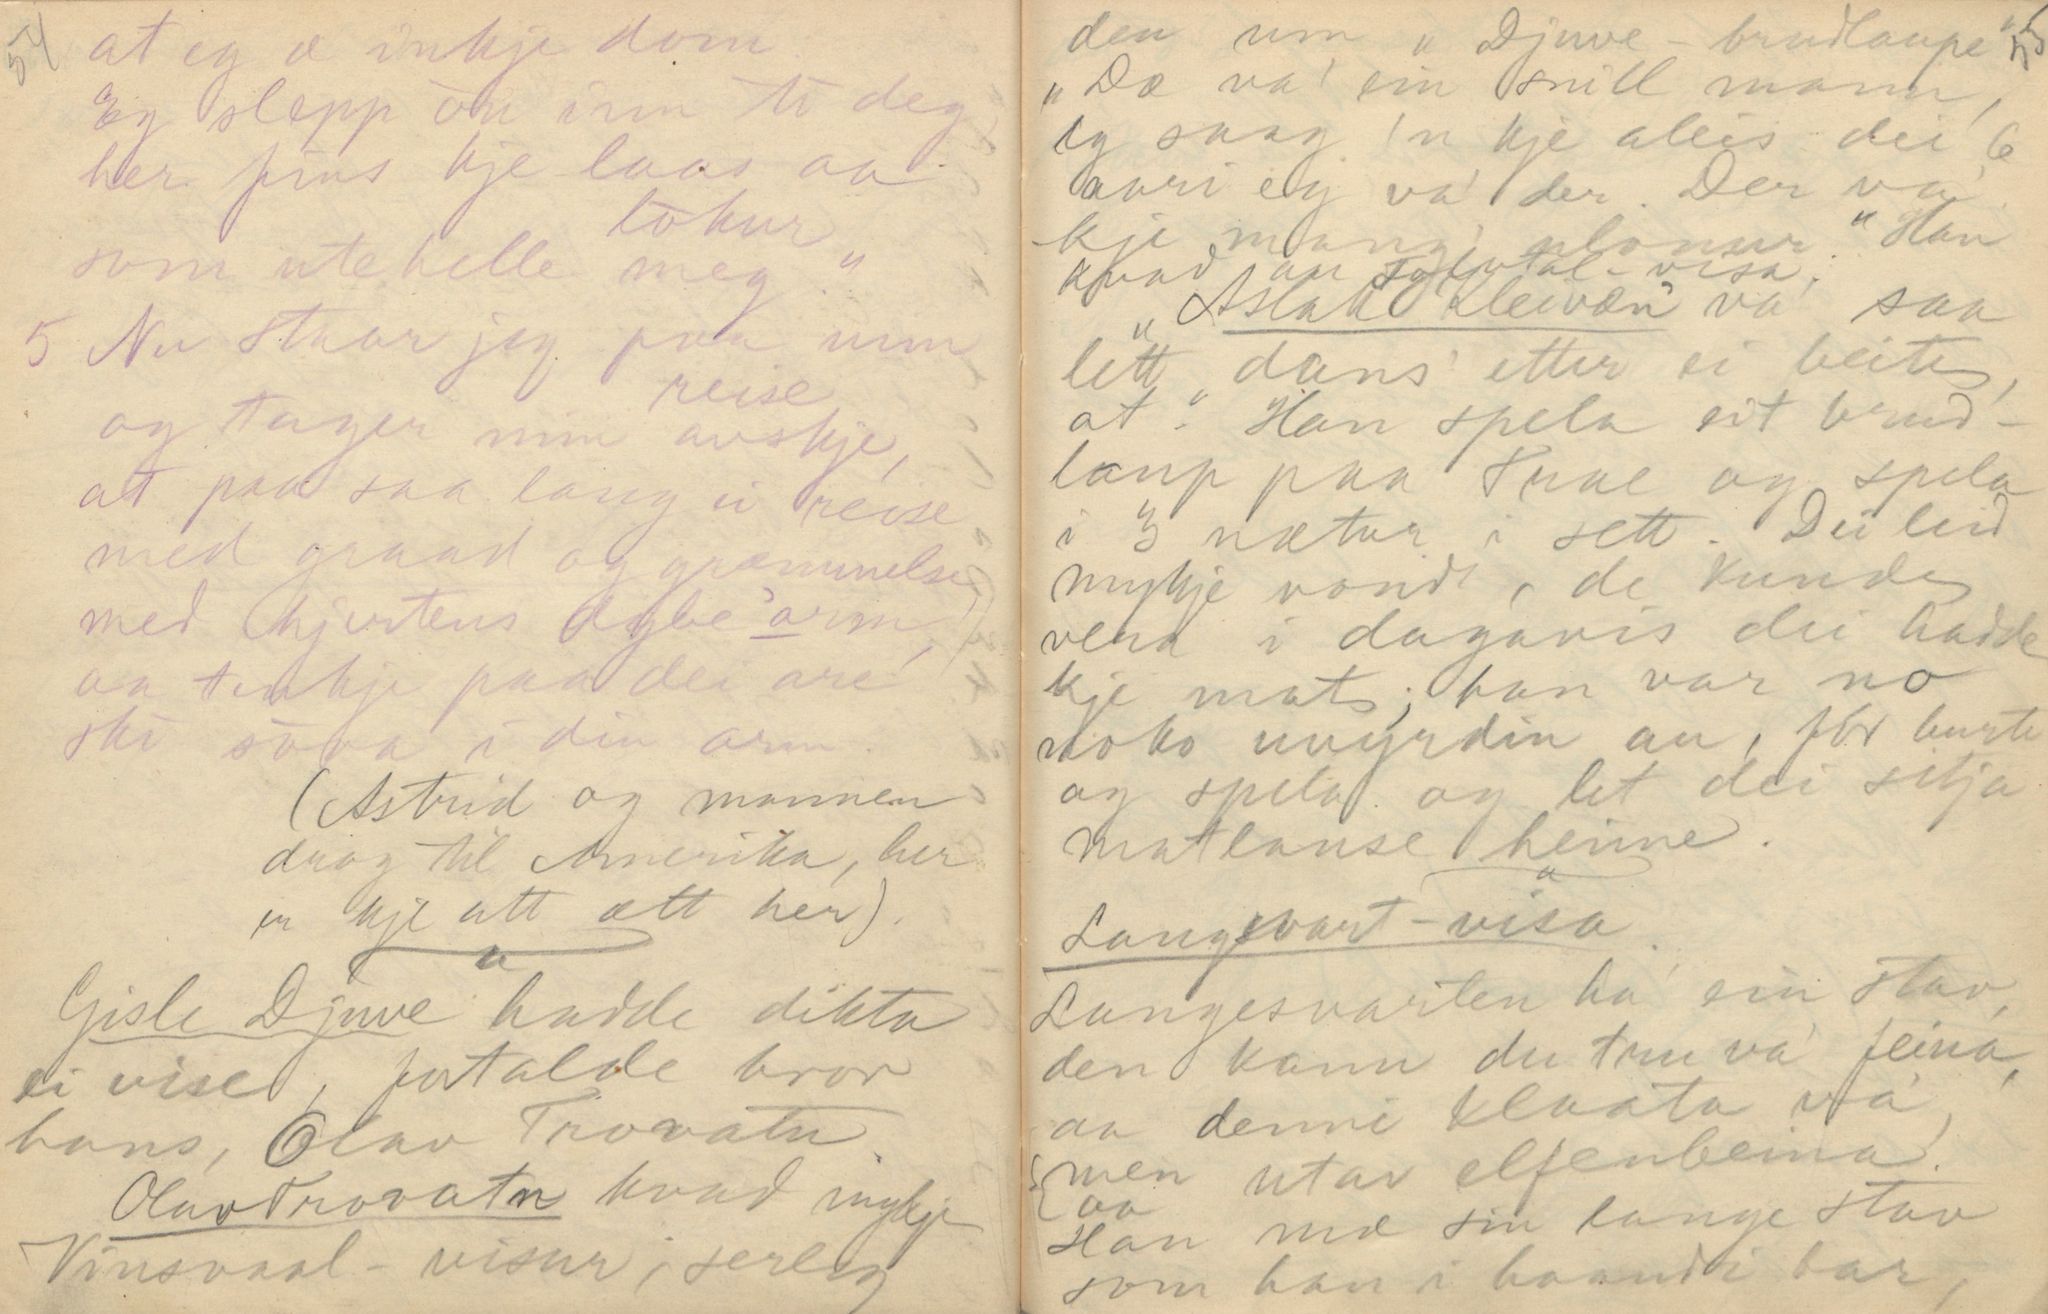 54
at eg æ inkje dom.
Eg slepp du inn ti deg,
her fins kje laas aa
lokur
som utehelle meg."
5 Nu staar jeg paa min
reise
og tager min avskje,
at paa saa lang ei reise
med graad og græmmelse
med hjertens dybe arm,
aa tenkje paa dei are
ski sova i din arm.
(Astrid og mannen
drog til Amerika, her
er kje att ætt her).
Gisle Djuve hadde dikta
ei vise, fortalde bror
hans, Olav Trovatn.
Olav Trovatn kvad mykje
Vinsvaal-visur, serleg
55
den um "Djuve-brudlaupe"
"Dæ va' ein snill mann,
eg saag 'n kje aleis dei 6
aari eg va' der. Der va'
kje mang' slonur." Han
kvad au visa.
"Aslak Kleivæn va' saa
lett dans' etter ei beite,
at." Han spela eit brud-
laup paa Trae og spela
i 3 nætur i sett. Dei leid
mykje vondt, de kunde
vera i dagavis dei hadde
kje mat; han var no
noko uvyrdin au, for burte
og spela og let dei sitja
matlause heime.
Langsvart-visa.
Langesvarten ha' ein stav,
den kann du tru va' feina,
aa denni klaata va',
men utav elfenbeina.
aa
Han mæ sin lange stav
som han i haandi bar,